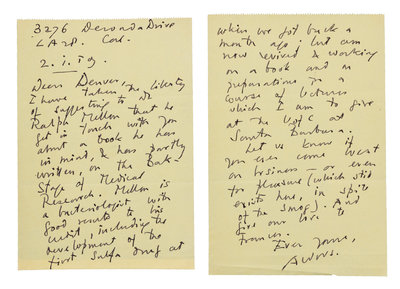 3276 Deronda Drive
LA 28. Cal.
2.i.59
Dear Denver,
I have taken the liberty
of suggesting to Dr
Ralph Mellon that he
get in touch with you
about a book he has
in mind, & has partly
written, on the Back-
Stage of Medical
Research. Mellon is
a bacteriologist with
good results to his
credit, including the
development of the
first Sulfa drug at
when we got back a
month ago; but am
now revived & working
on a book and on
preparations for a
course of lectures
which I am to give
at the U of C at
Santa Barbara.
Let us know if
you ever come West
on business — or even
for pleasure (which still
exists here, in spite
of the smog). And
give our love to
Frances.
Ever yours,
Aldous.